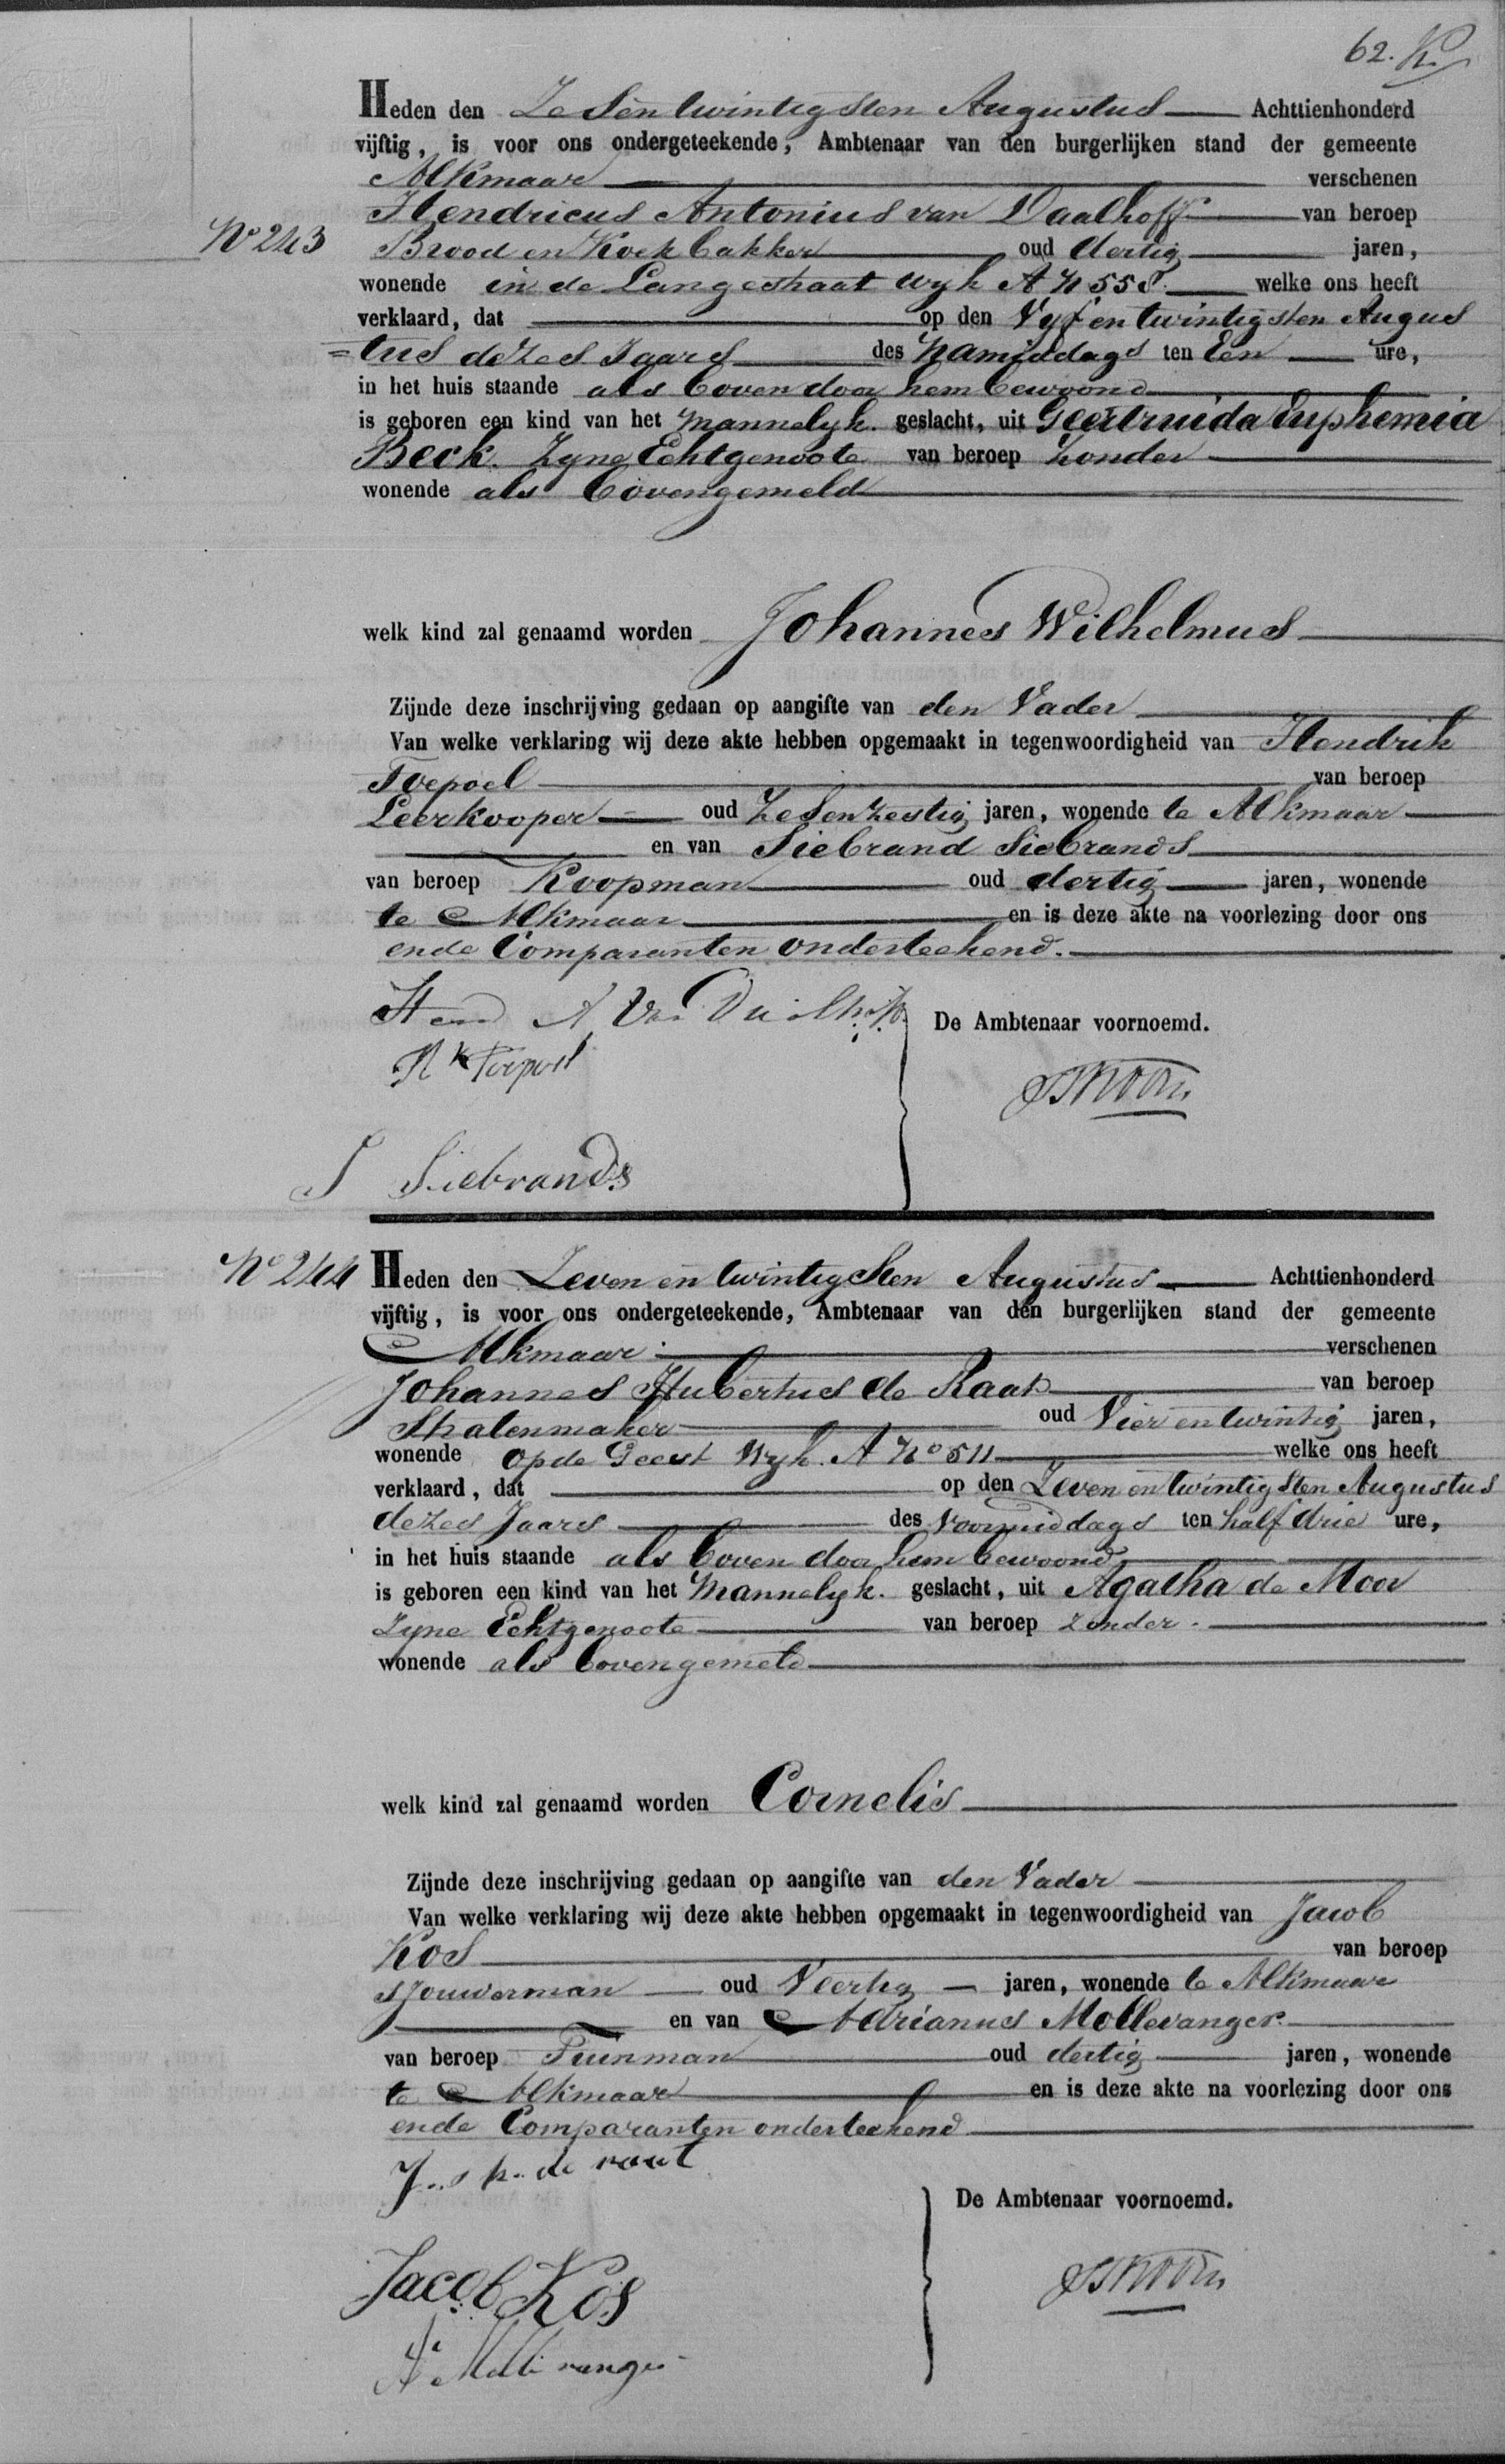 62.
Heden den Zesentwintigsten Augustus Achttienhonderd
vijftig, is voor ons ondergeteekende, Ambtenaar van den burgerlijken stand der gemeente
Alkmaar verschenen
Hendricus Antonius van Daalhoff van beroep
No 243 Brood en Koek bakker oud dertig jaren,
wonende in de Langestraat wyk A N 558 welke ons heeft
verklaard, dat op den Vyf en twintigsten Augus
=tus dezes Jaars des namiddags ten Een ure,
in het huis staande als boven door hem bewoond
is geboren een kind van het Mannelyk. geslacht, uit Geertruida Euphemia
Beck. Zyne Echtgenoote van beroep Zonder
wonende als bovengemeld
welk kind zal genaamd worden Johannes Wilhelmus
Zijnde deze inschrijving gedaan op aangifte van den Vader
Van welke verklaring wij deze akte hebben opgemaakt in tegenwoordigheid van Hendrik
Toepoel van beroep
Leerkooper oud Zesenzestig jaren, wonende te Alkmaar
en van Siebrand Siebrands
van beroep Koopman oud dertig jaren, wonende
te Alkmaar en is deze akte na voorlezing door ons
ende Comparanten onderteekend.
Hend A Van Daalhoff
De Ambtenaar voornoemd.
Hk Toepoel
S Siebrands
No 244 Heden den Zeven en twintigsten Augustus Achttienhonderd
vijftig, is voor ons ondergeteekende, Ambtenaar van den burgerlijken stand der gemeente
Alkmaar verschenen
Johannes Hubertus de Raat van beroep
oud Vier en twintig jaren,
wonende op de Geest Wyk. A No 511 welke ons heeft
verklaard, dat op den Zeven en twintigsten Augustus
dezes Jaars des voormiddags ten half drie ure,
in het huis staande als boven door hem bewoond
is geboren een kind van het Mannelyk. geslacht, uit Agatha de Moor
Zyne Echtgenoote van beroep zonder
wonende als bovengemeld
welk kind zal genaamd worden Cornelis
Zijnde deze inschrijving gedaan op aangifte van den Vader
Van welke verklaring wij deze akte hebben opgemaakt in tegenwoordigheid van Jacob
Kos van beroep
sjouwerman oud Veertig jaren, wonende te Alkmaar
en van Adrianus Mollevanger
van beroep Tuinman oud dertig jaren, wonende
te Alkmaar en is deze akte na voorlezing door ons
ende Comparanten onderteekend
de raat
De Ambtenaar voornoemd.
Jacob Kos
A Mollevanger